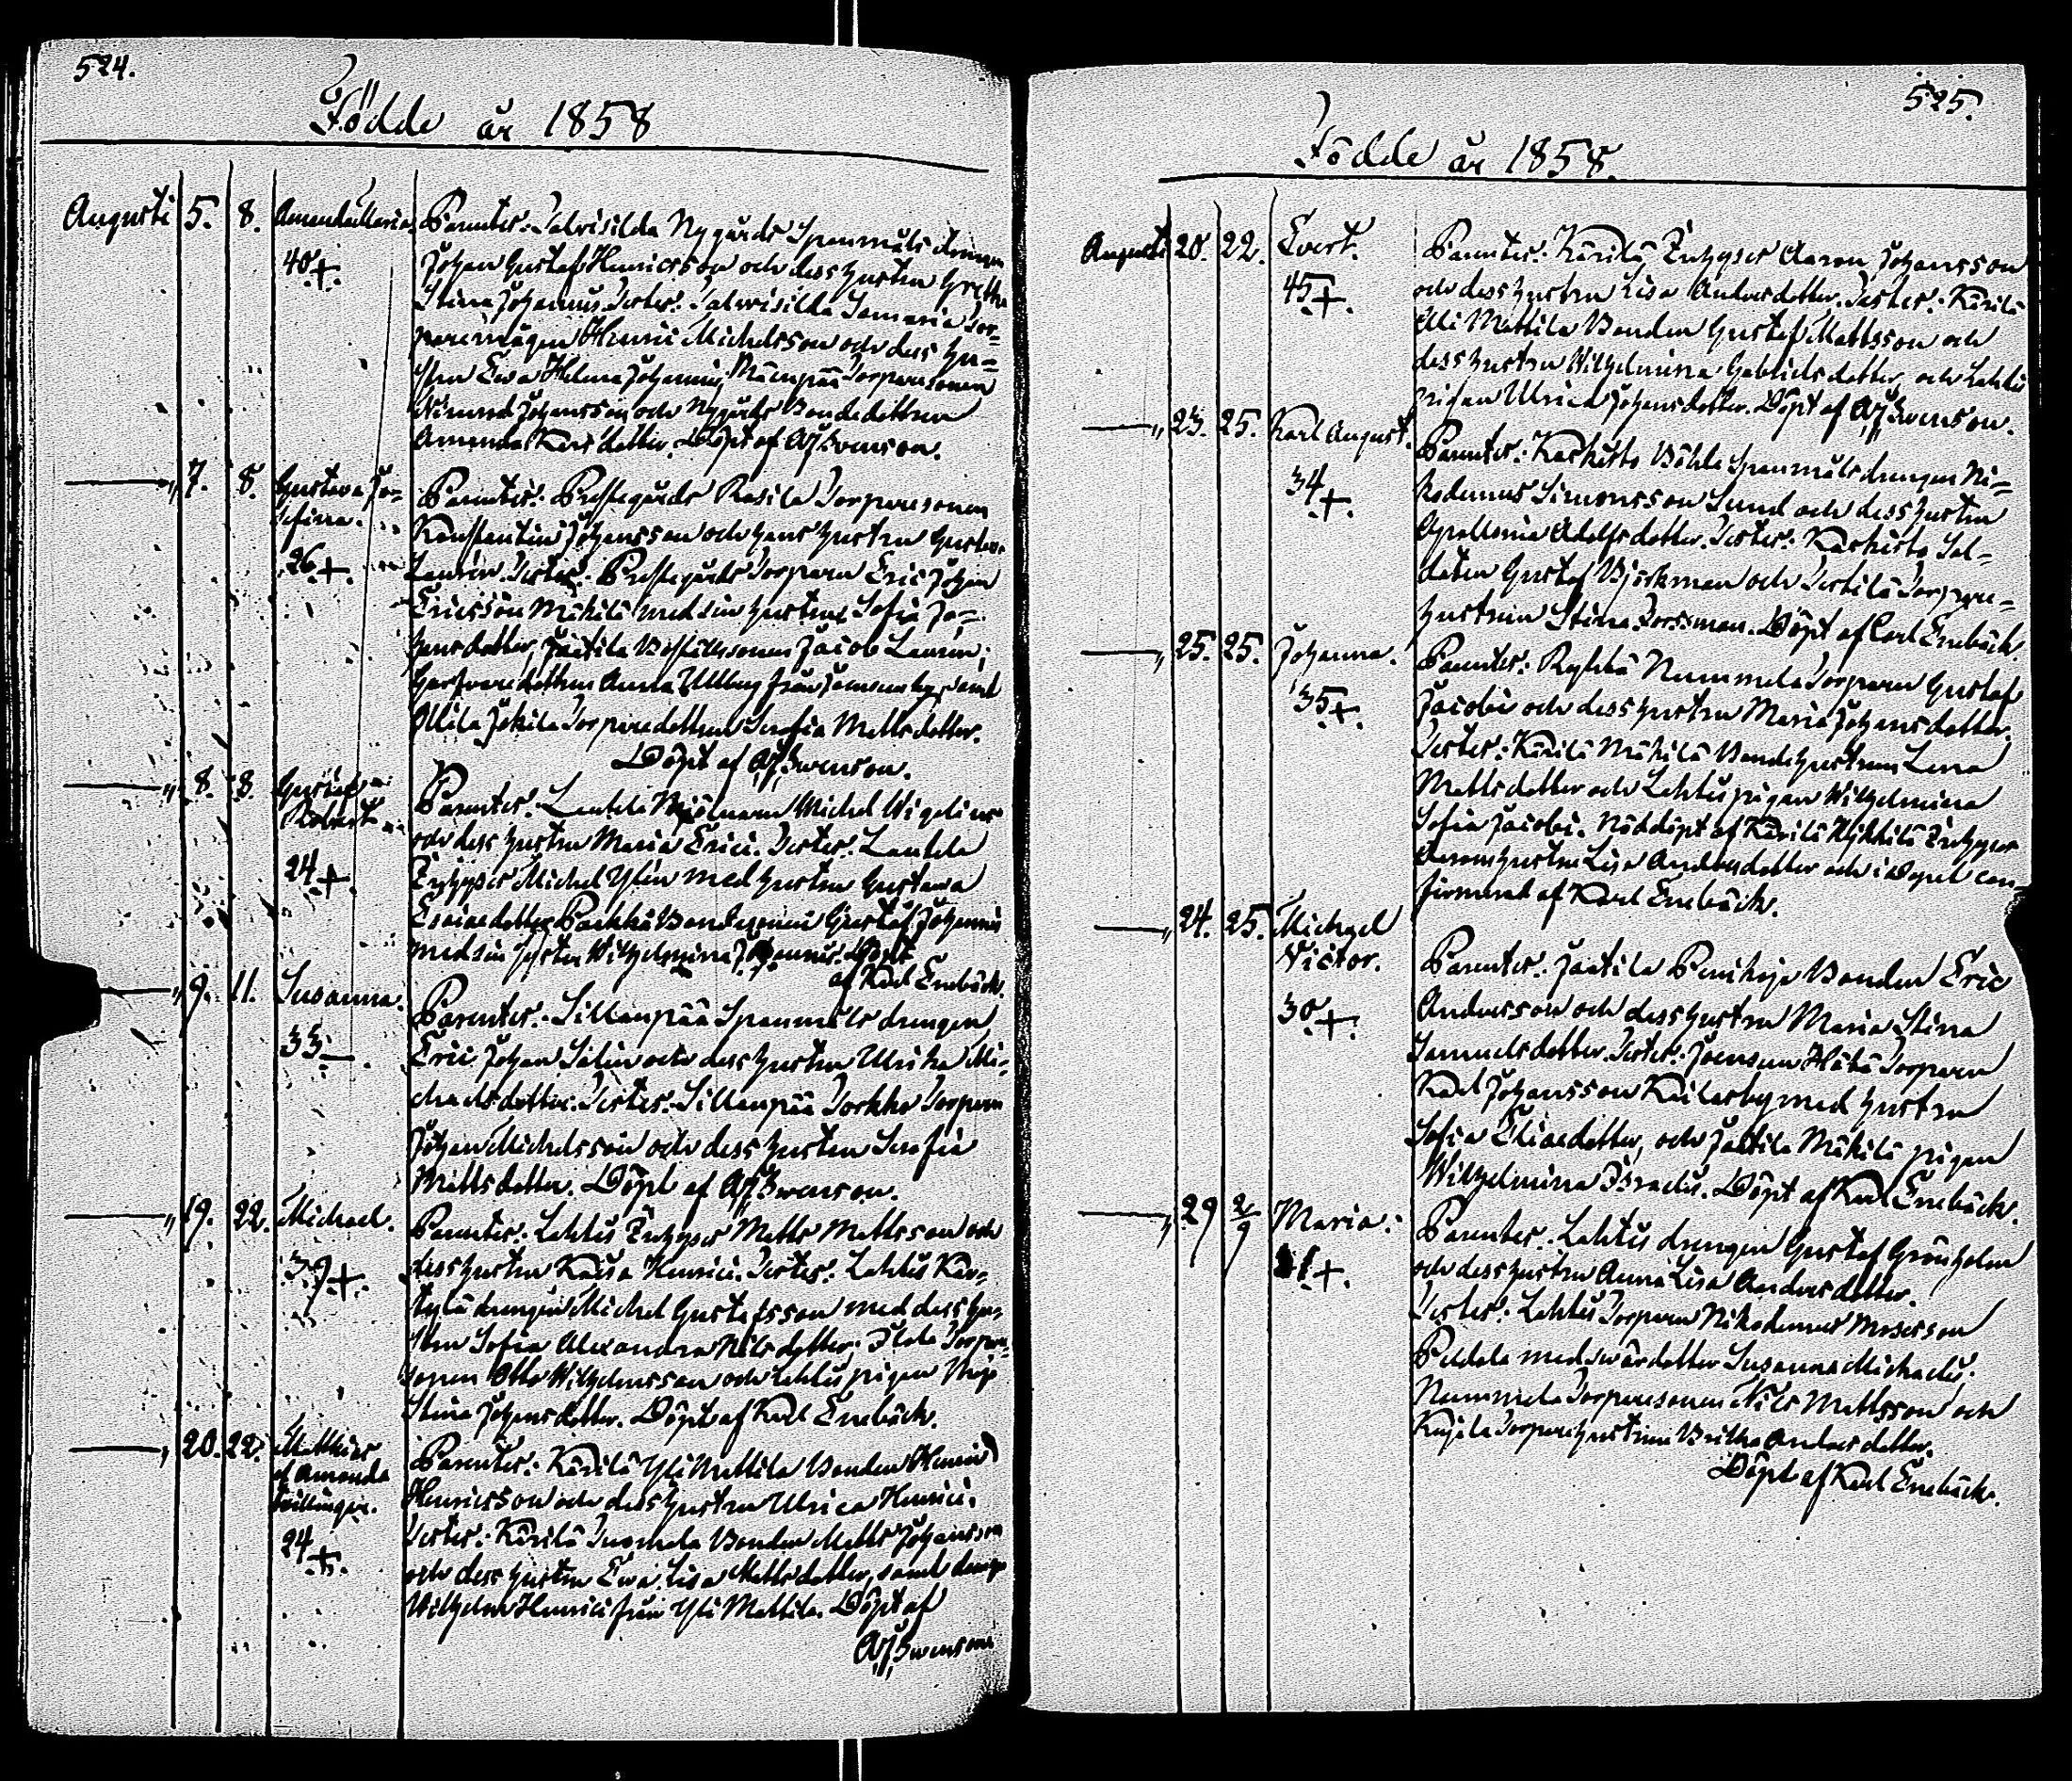 524.
Födde år 1858
Augusti 5. 8. Amanda Maria. Parenter: Talvisilda Nygårds Spanmåls drengen
40+ Johan Gustaf Henricsson och dess hustru Gretha
Stina Johannis. Testes: Talvisilda
Henric Michelsson och dess hu-
stru Eva Helena Johannis, Mäenpää Torparesonen
Johansson och Nygårds Bondedottren
Amanda Karlsdotter. Döpt af AJSwenson.
—„ 7. 8. Gustava Jo- Parenter: Prestgårds Rasila Torparesonen
sefina. Konstantin Johansson och hans hustru Gustava
26+ Laurén. Testes: Prestgårds Torparen Eric Johan
Ericsson Mäkilä med sin hustru Sofia Jo-
hansdotter, Jaatila Jacob Laurén,
Anna Ullberg från samt
Ollila Torparedottren Serafia Mattsdotter.
Döpt af AJSwenson.
—„ 8. 8. Gustaf Parenter: Lautela Mjölnaren Michel Wigelius
Robert och dess hustru Maria Erici. Testes: Lautela
24+ Inhyses Michel Ylén med hustru Gustava
Esaiaedotter, Bondesonen Gustaf Johannis
med sin syster Wilhelmina Johannis. Döpt
af Karl Enebäck.
—„ 9. 11. Susanna. Parenter: Sillanpää Spanmåls drengen
33— Eric Johan Salin och dess hustru Ulrika Mi-
chaelsdotter. Testes: Sillanpää Torkko Torparen
Johan Michelsson och dess hustru Serafia
Mattsdotter. Döpt af AJSwenson.
—„ 19. 22. Michael. Parenter: Lahtis Inhyses Matts Mattsson och
39+ dess hustru Kaisa Henrici. Testes: Lahtis
drengen Michel Gustafsson med dess hu-
stru Sofia Alexandra Nilsdotter, Torpare-
sonen Otto Wilhelmsson och Lahtis pigan Maja
Stina Johansdotter. Döpt af Karl Enebäck.
—„ 20. 22. Matthias Parenter: Kärilä Yli Mattila Bonden Henric
et Amanda Henricsson och dess hustru Ulrica Henrici.
tvillingar. Testes: Kärilä Tuomola Bonden Matts Johansson
24+ och dess hustru Eva Lisa Mattsdotter, samt dreng
Wilhelm Henrici från Yli Mattila. Döpt af
AJSwenson
525.
Födde år 1858.
Augusti 20. 22. Evert. Parenter: Kärilä Inhyses Aaron Johansson
45+ och dess hustru Lisa Andersdotter. Testes: Kärilä
Alli Mattila Bonden Gustaf Mattsson och
dess hustru Wilhelmina Gabrielsdotter, och Lahtis
pigan Ulrica Johansdotter. Döpt af AJSwenson.
—„ 23. 25. Karl August. Parenter: Karhisto Böhle Spanmåls drengen Ni-
34+ kodemus Simonsson Sund och dess hustru
Apollonia Adolfsdotter. Testes: Karhisto Sol-
daten Gustaf Björkman och Torpare-
hustrun Stina Forssman. Döpt af Carl Enebäck.
—„ 25. 25. Johanna. Parenter: Nummela Torparen Gustaf
35+ Jacobi och dess hustru Maria Johansdotter.
Testes: Kärilä Mäkilä Bondehustrun Lena
Mattsdotter och Lahtis pigan Wilhelmina
Sofia Jacobi. Nöddöpt af Kärilä Inhyses
Aarons hustru Lisa Andersdotter och i dopet con-
firmerat af Karl Enebäck.
—„ 24. 25. Michael Parenter: Jaatila Penihoja Bonden Eric
Victor. Andersson och dess hustru Maria Stina
30+ Samuelsdotter. Testes: Torparen
Karl Johansson med hustru
Sofia Eliaedotter, och Jaatila Mäkilä pigan
Wilhelmina Israelis. Döpt af Karl Enebäck.
—„ 29 2/9 Maria. Parenter: Lahtis drengen Gustaf Grönholm
41+ och dess hustru Anna Lisa Andersdotter.
Testes: Lahtis Torparen Nikodemus Mosesson
Peldola med svärdotter Susanna Michaelis.
Nummela Torparesonen Nils Mattsson och
Torparehustrun Britha Andersdotter.
Döpt af Karl Enebäck.